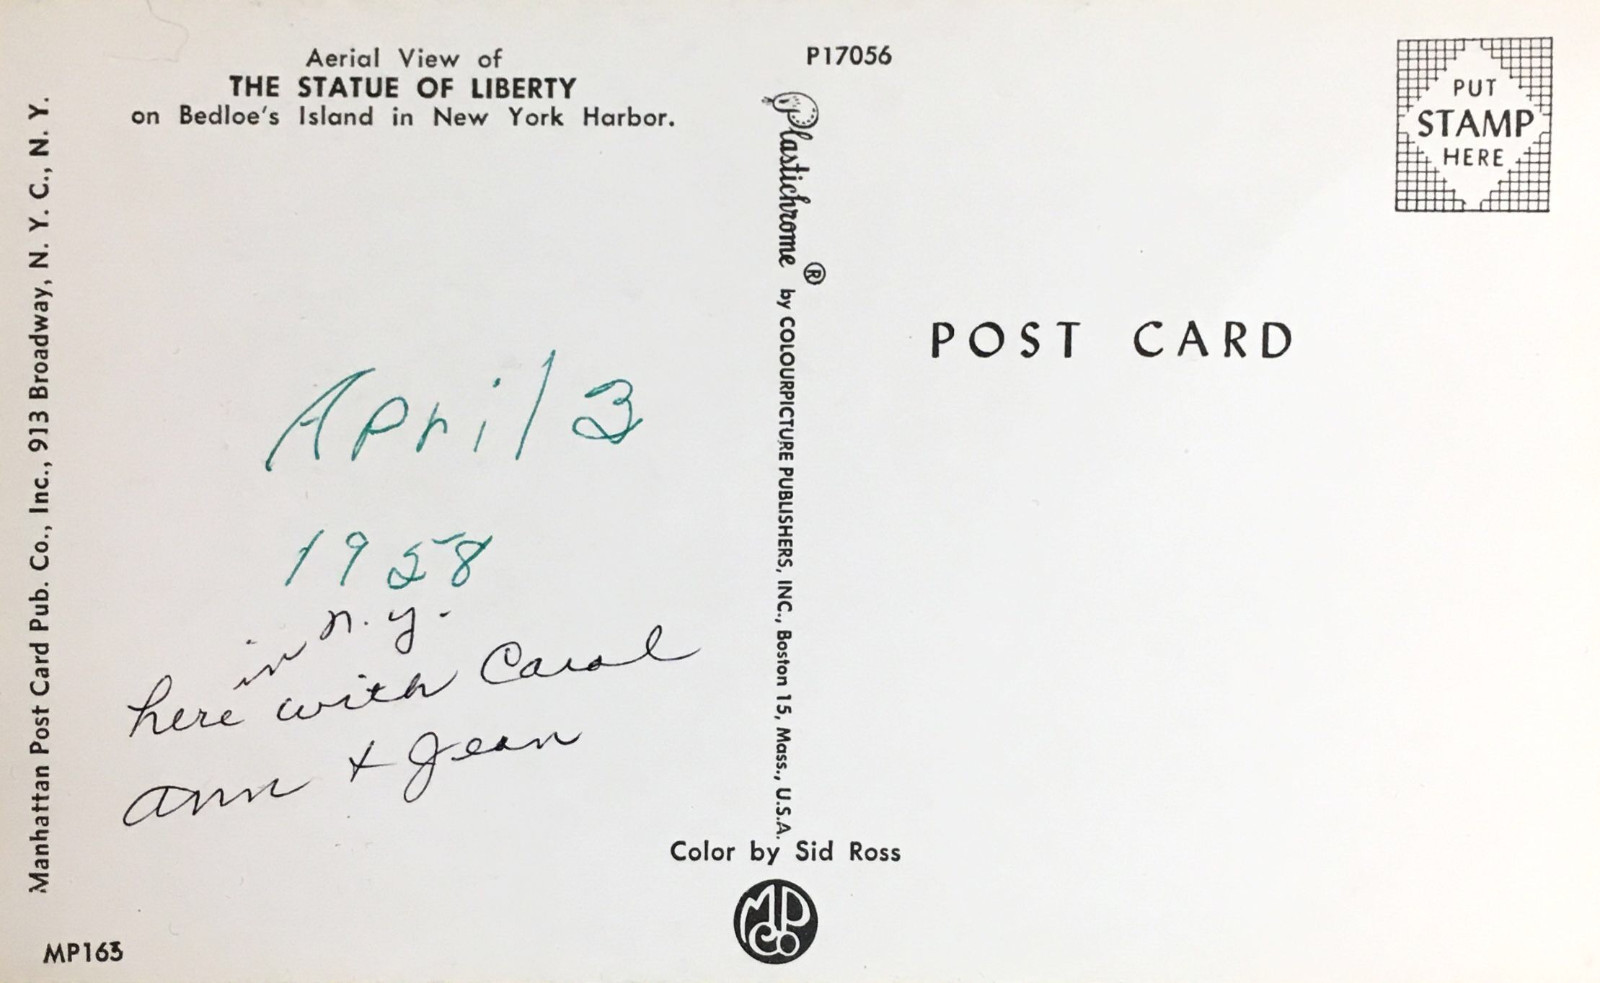 Aerial View of
THE STATUE OF LIBERTY
on Bedloe's Island in New York Harbor.
Manhattan Post Card Pub. Co., Inc., 913 Broadway, N. Y. C., N. Y.
April 3
1958
in n.y.
here with Carol
ann + Jean
MP163
P17056
Plastichrome ® by COLOURPICTURE PUBLISHERS, INC., Boston 15, Mass., U.S.A.
Color by Sid Ross
MP Co
PUT
STAMP
HERE
POST CARD